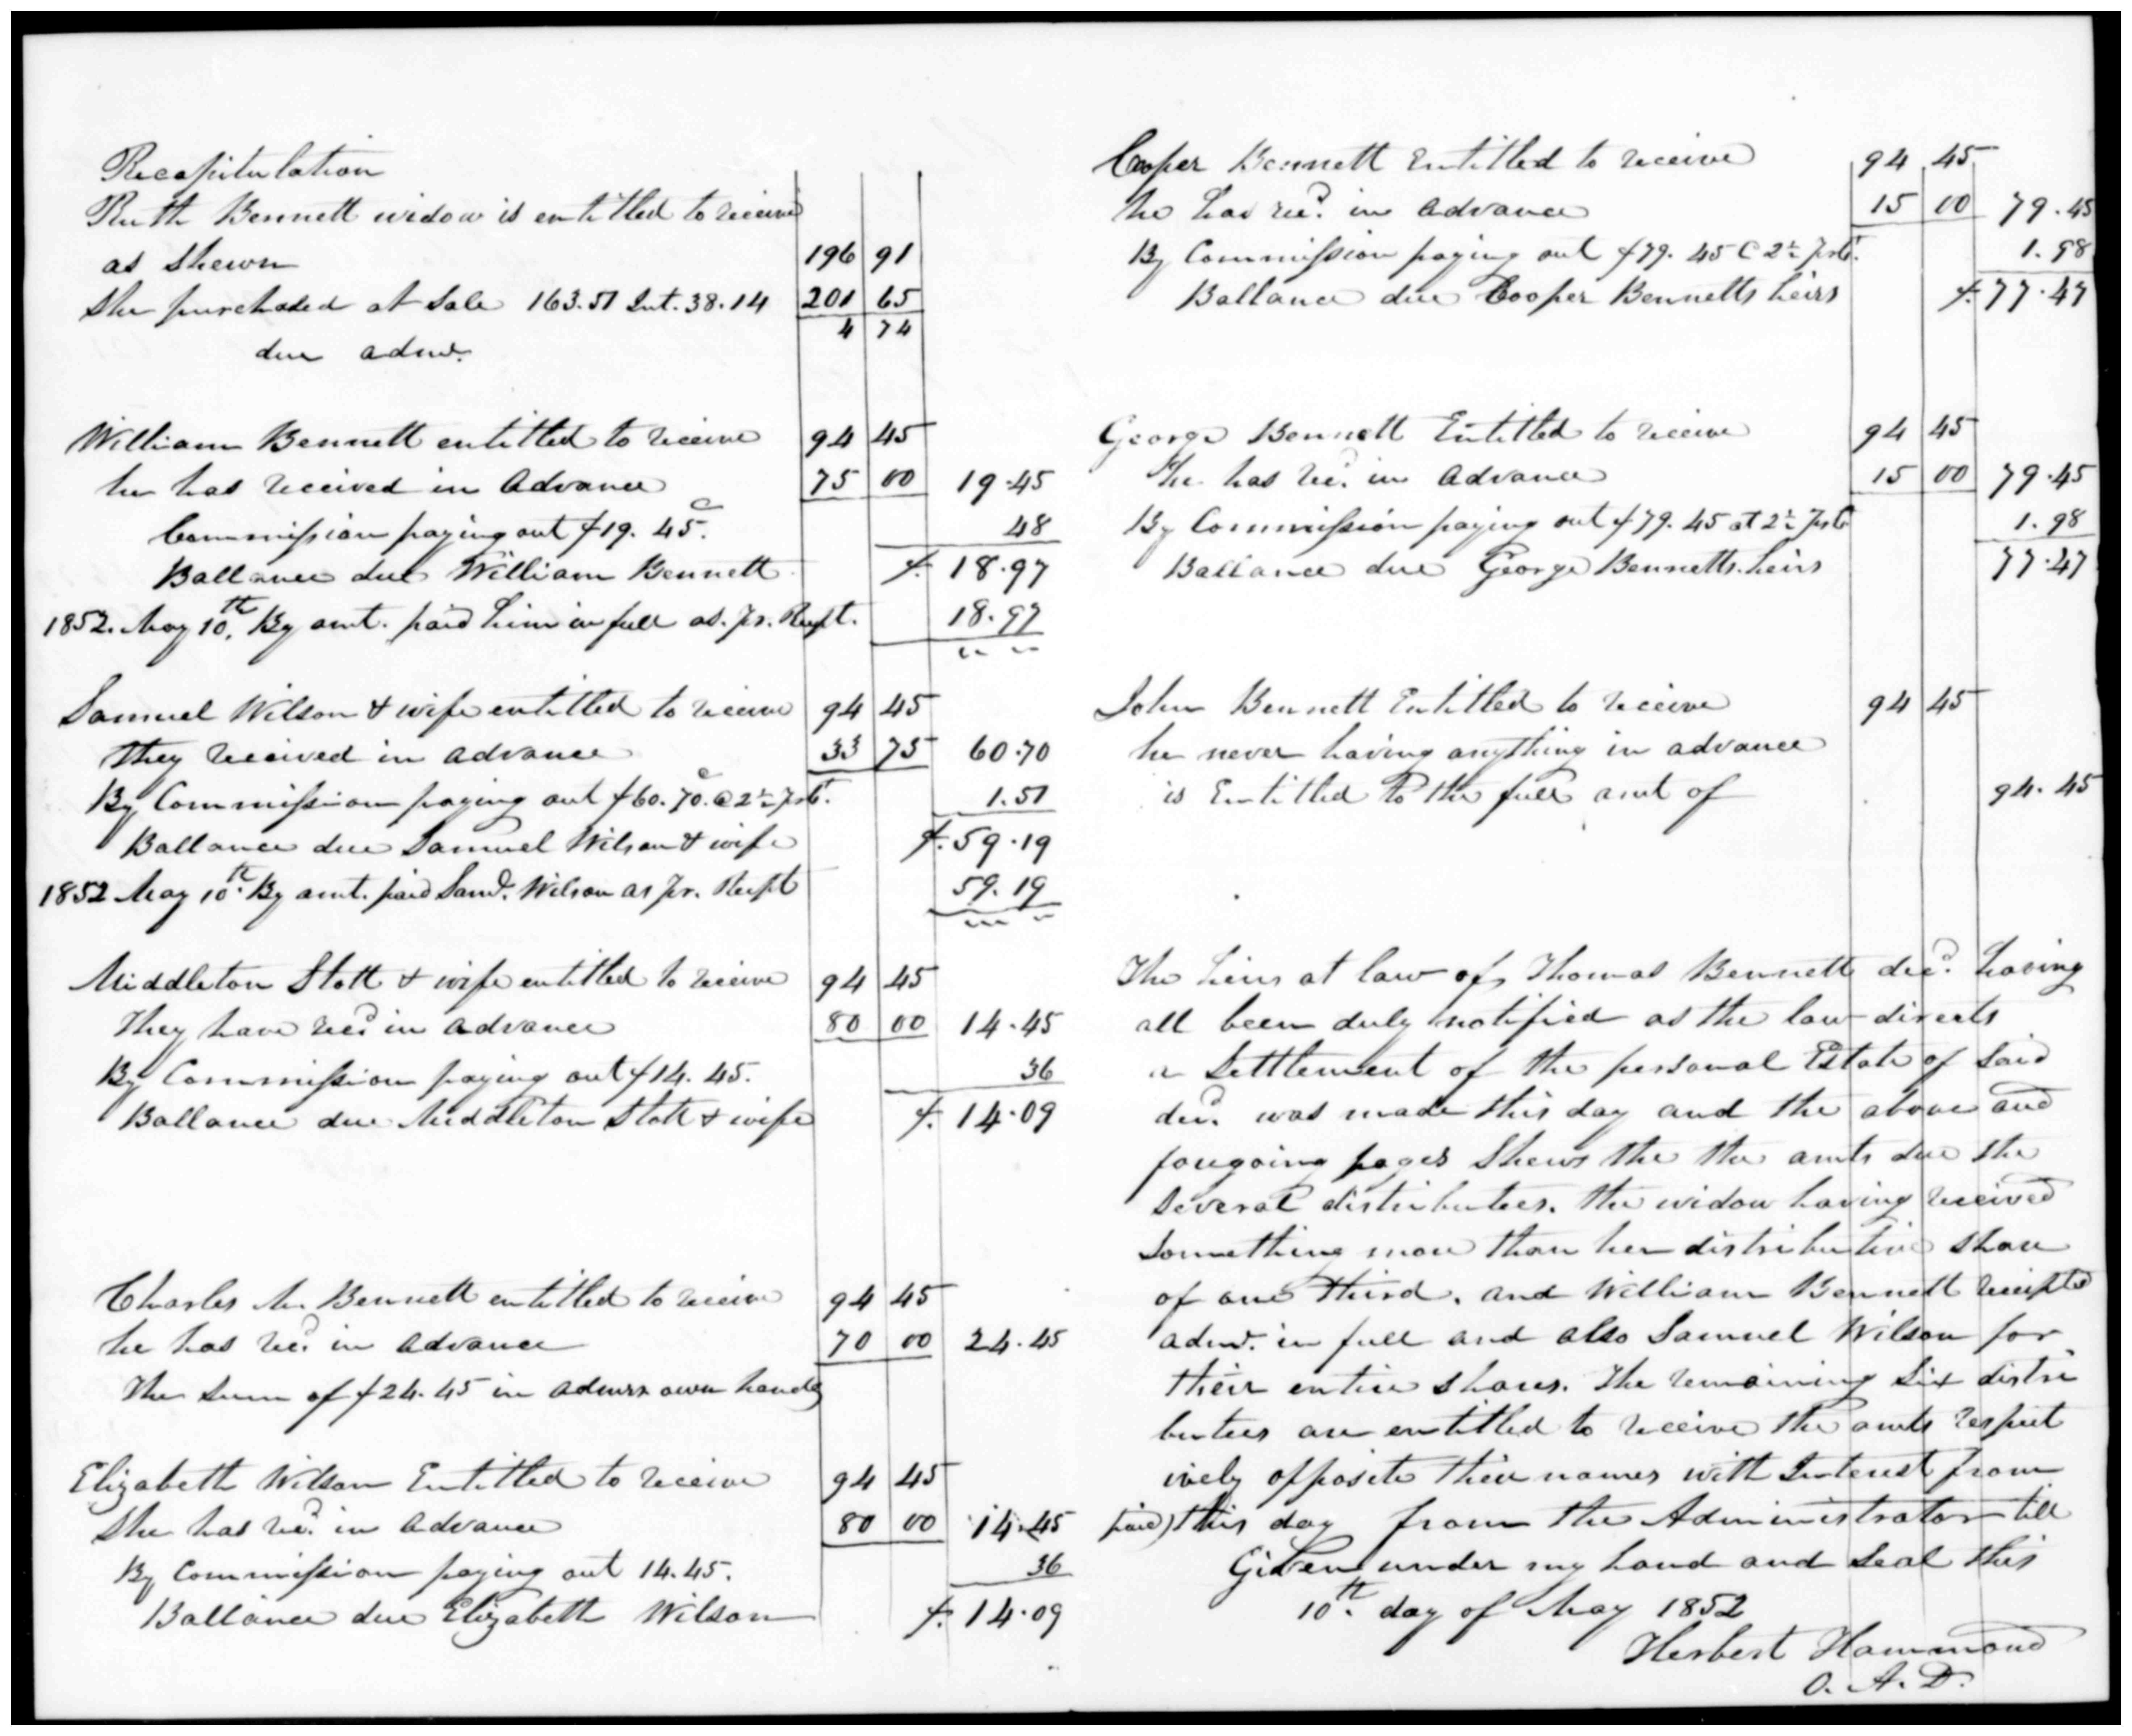 Recapitulation
Ruth Bennett widow is entitled to receive
as shewn 196 91
She purchased at Sale 163.51 Int. 38.14 201 65
4 74
due admr.
William Bennett entitled to receive 94 45
he has received in Advance 75 00 19.45
Commission paying out $19. 45c. 48
Ballance due William Bennett $. 18.97
1852. May 10th. By amt. paid him in full as. pr. Rcpt. 18.97
" "
Samuel Wilson & wife entitled to receive 94 45
They received in advance 33 75 60.70
By Commission paying out $60.70.c @ 2½ prct. 1.51
Ballance due Samuel Wilson & wife $.59.19
1852 May 10th. By amt. paid Saml. Wilson as pr. Recpt 59.19
" "
Middleton Stott & wife entitled to receive 94 45
They have recd in advance 80 00 14.45
By Commission paying out $14. 45. 36
Ballance due Middleton Stott & wife $. 14.09
Charles M. Bennett entitled to receive 94 45
he has recd. in Advance 70 00 24.45
The Sum of $24.45 in admrs own hands
Elizabeth Wilson Entitled to receive 94 45
She has recd. in Advance 80 00 14.45
By Commission paying out 14.45. 36
Ballance due Elizabeth Wilson $. 14.09
Cooper Bennett Entitled to receive 94 45
he has recd. in Advance 15 00 79.45
By Commission paying out $79. 45 @ 2½ prct. 1.98
Ballance due Cooper Bennetts heirs $.77.47
George Bennett Entitled to receive 94 45
he has recd. in Advance 15 00 79.45
By Commission paying out $79. 45 at 2½ prct 1.98
Ballance due George Bennetts heirs 77.47
John Bennett Entitled to receive 94 45
he never having anything in advance
is Entitled to the full amt of 94.45
The heirs at law of Thomas Bennett decd. having
all been duly notified as the law directs
a Settlement of the personal Estate of Said
decd. was made this day and the above and
foregoing pages Shews the the amts due the
Several distributees. the widow having received
Something more than her distributive share
of one third. and William Bennett receipted
admr. in full and also Samuel Wilson for
their entire shares. The remaining Six distri
butees are entitled to receive the amts respect
ively opposite their names with Interest from
paid) this day from the Administrator till
Given under my hand and Seal this
10th. day of May 1852
Herbert Hammond
O. A. D.